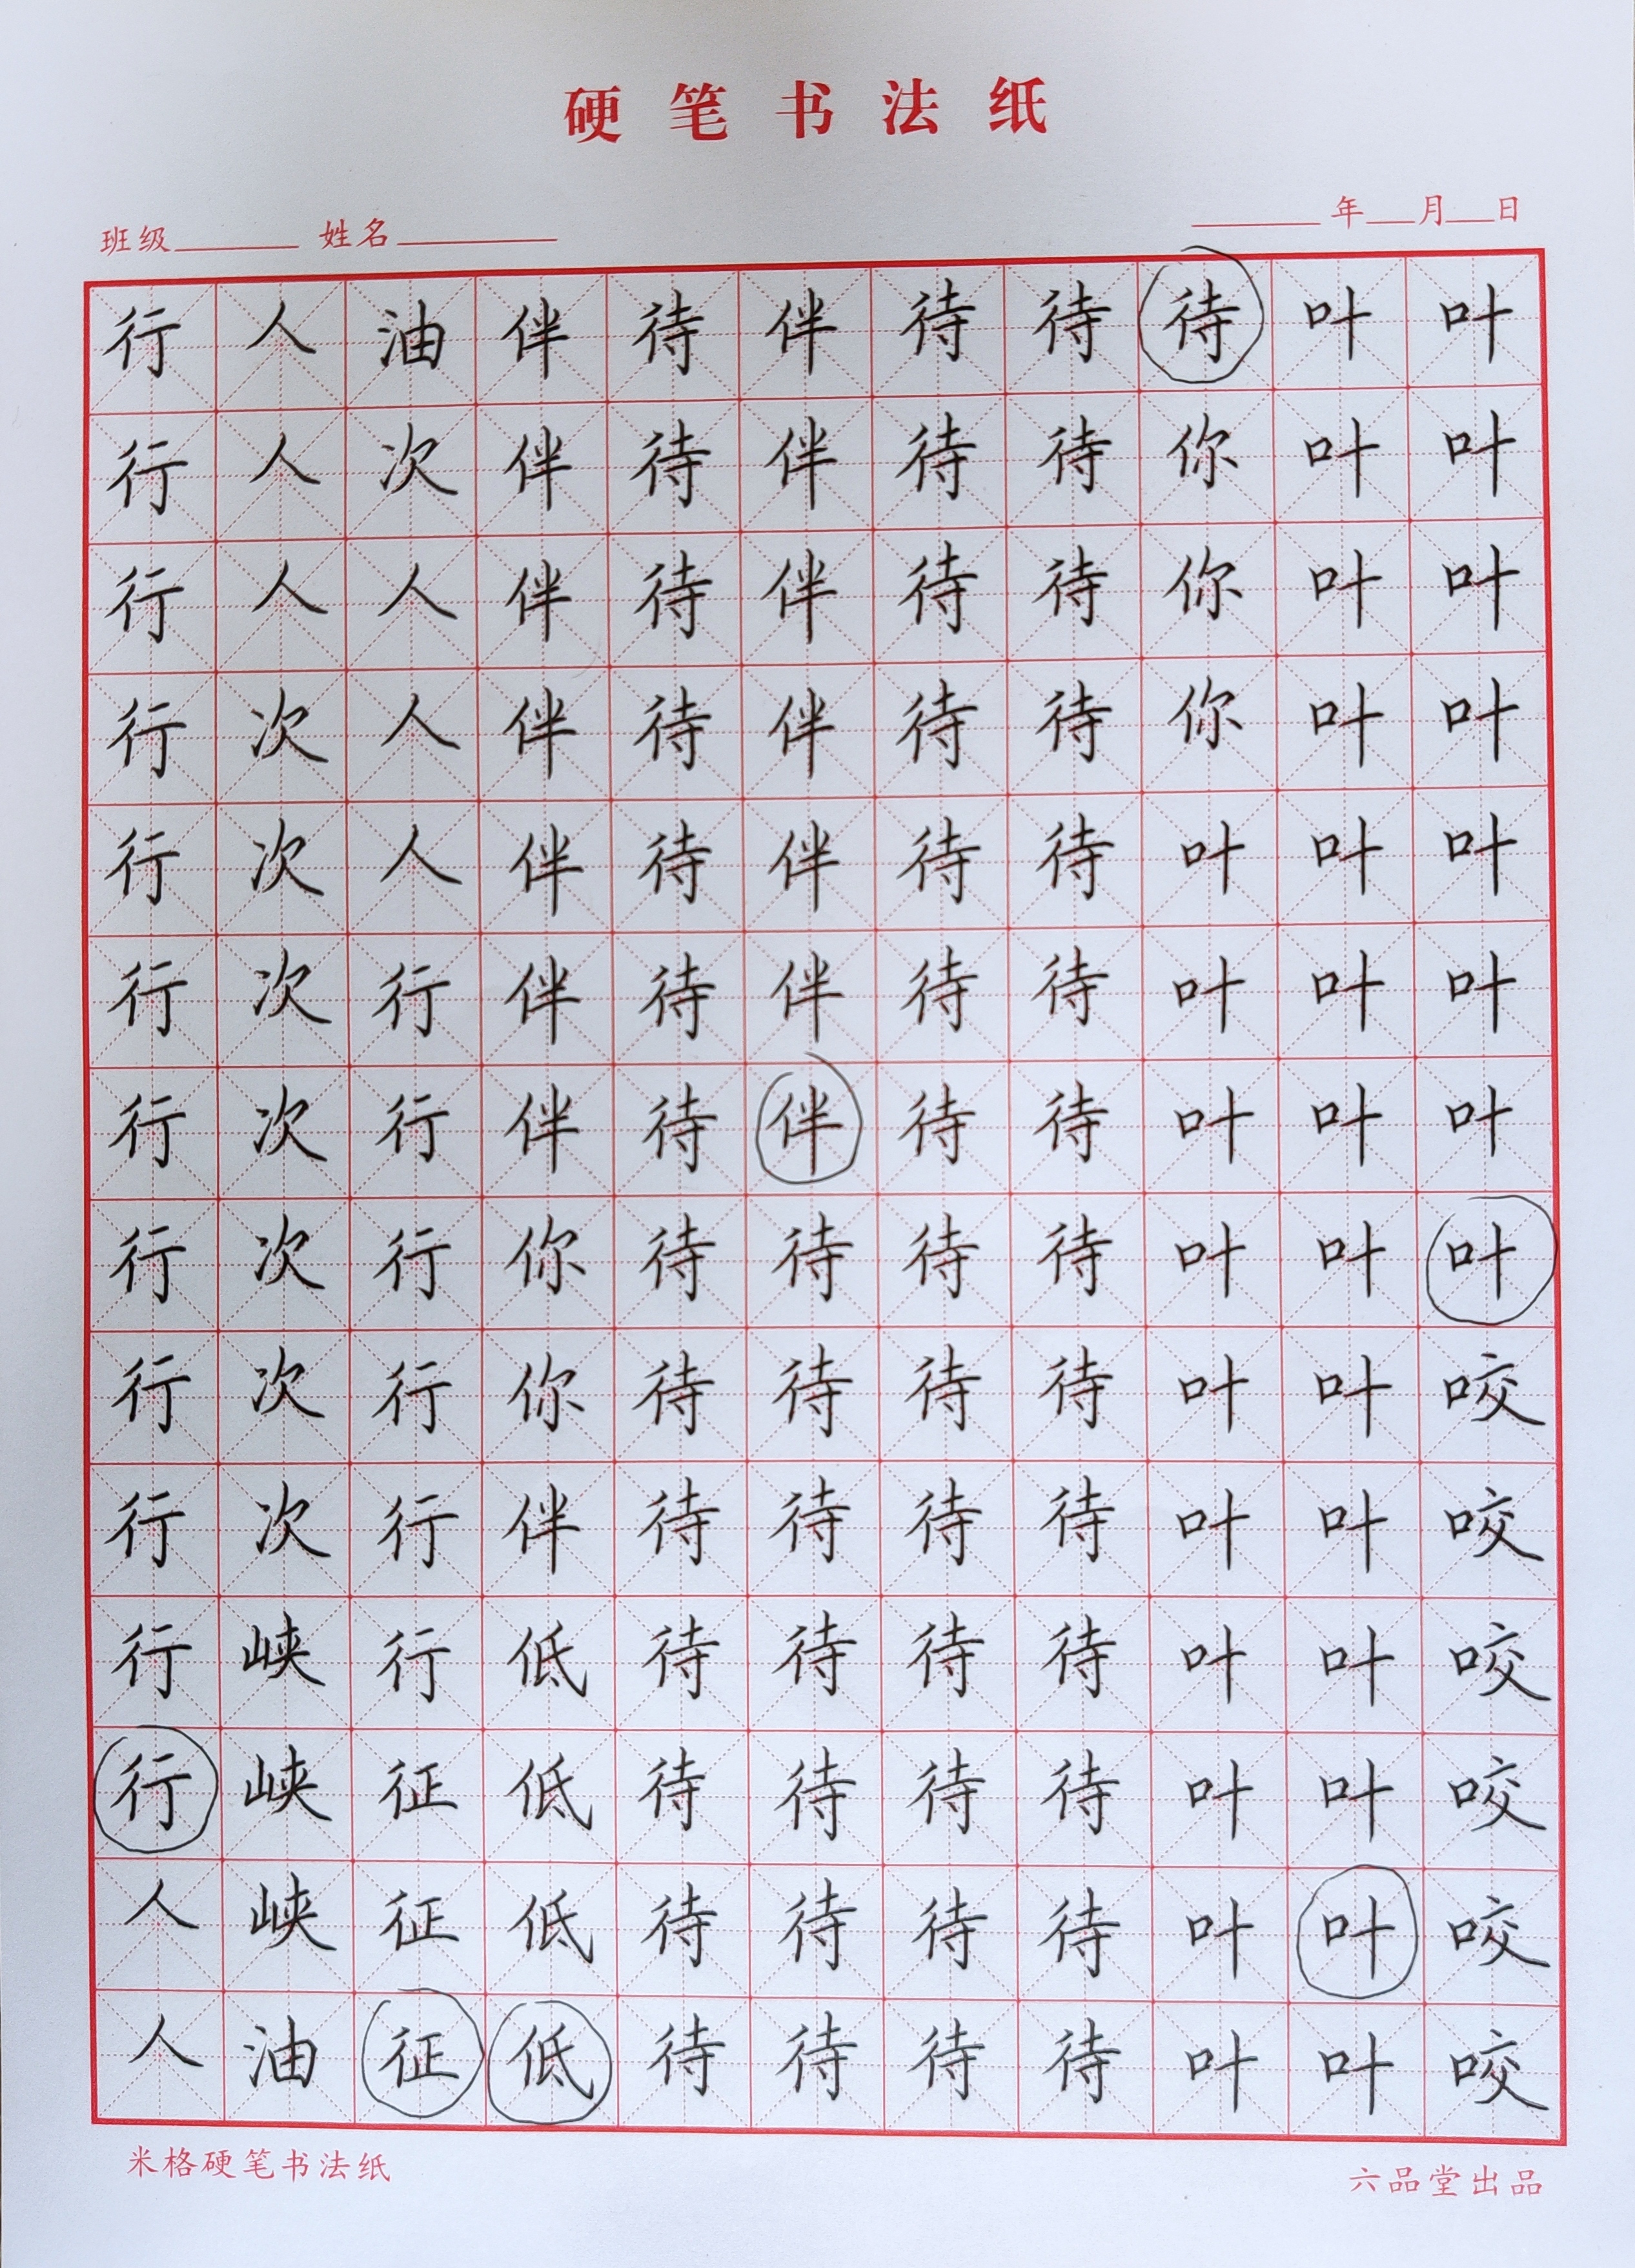 硬笔书法纸
班级 姓名 年 月 日
行人油伴待伴待待待叶叶
行人次伴待伴待待你叶叶
行人人伴待伴待待你叶叶
行次人伴待伴待待你叶叶
行次人伴待伴待待叶叶叶
行次行伴待伴待待叶叶叶
行次行伴待伴待待叶叶叶
行次行你待待待待叶叶叶
行次行你待待待待叶叶咬
行次行伴待待待待叶叶咬
行峡行低待待待待叶叶咬
行峡征低待待待待叶叶咬
人峡征低待待待待叶叶咬
人油征低待待待待叶叶咬
米格硬笔书法纸
六品堂出品